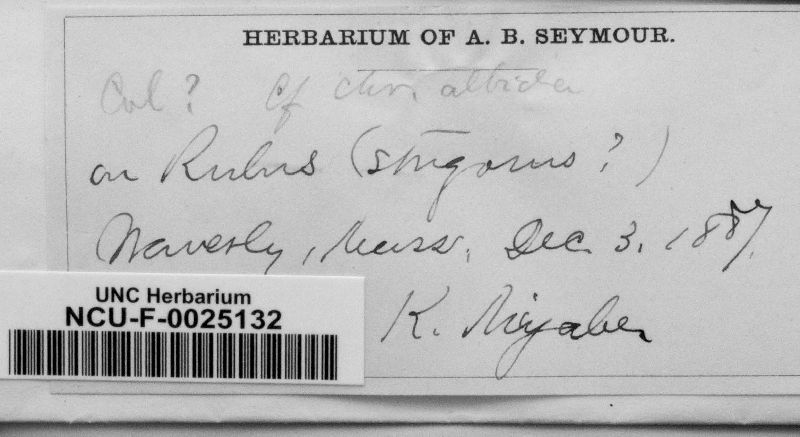 HERBARIUM OF A. B. SEYMOUR.
Col? Cf chr. albida
on Rubus (strigosus?)
Waverly, Mass. Dec. 3. 1887.
K. Miyabe
UNC Herbarium
NCU-F-0025132